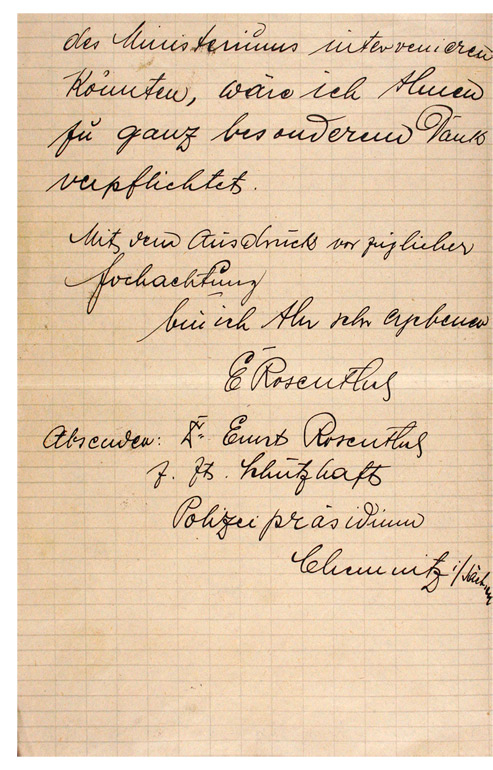 des Ministeriums intervenieren
könnten, wäre ich Ihnen
zu ganz besonderem Dank
verpflichtet.
Mit dem Ausdruck vorzüglicher
Hochachtung
bin ich Ihr sehr ergebener
E Rosenthal
Absender: Dr. Ernst Rosenthal
z. Zt. Schutzhaft
Polizeipräsidium
Chemnitz i/Sachsen